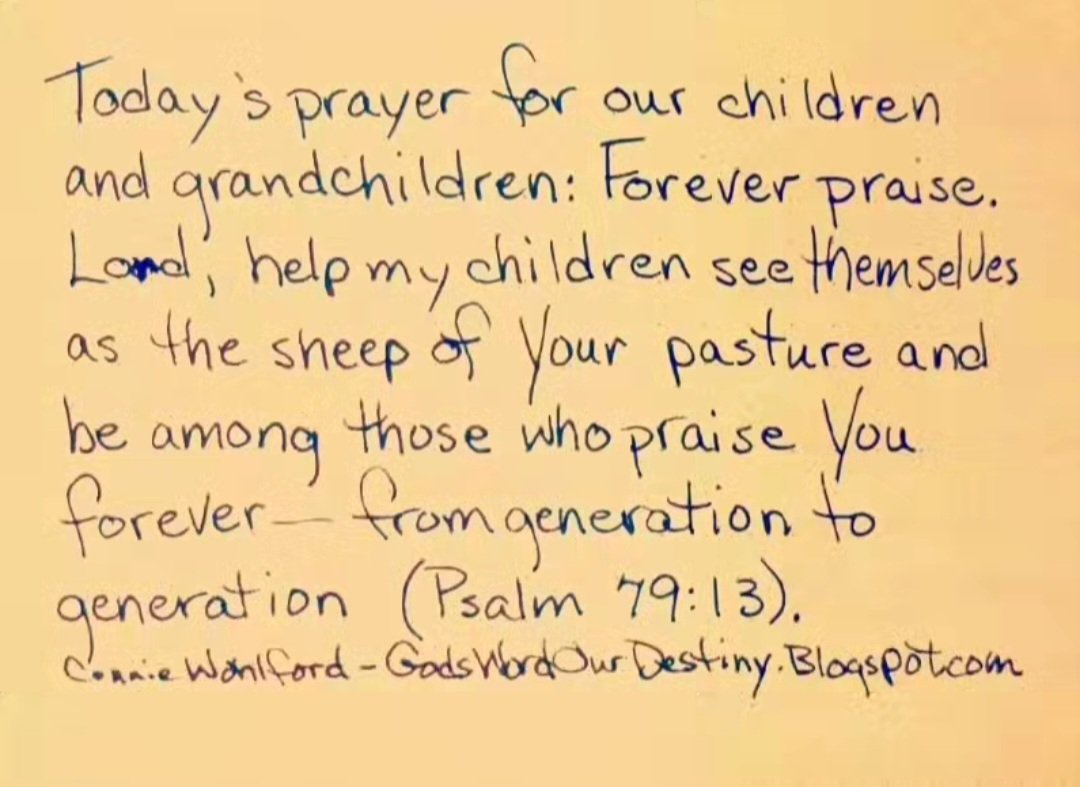 Today's prayer for our children
and grandchildren: Forever praise.
Lord, help my children see themselves
as the sheep of Your pasture and
be among those who praise You
forever — from generation to
generation (Psalm 79:13).
Connie Wohlford - GodsWordOurDestiny.Blogspot.com